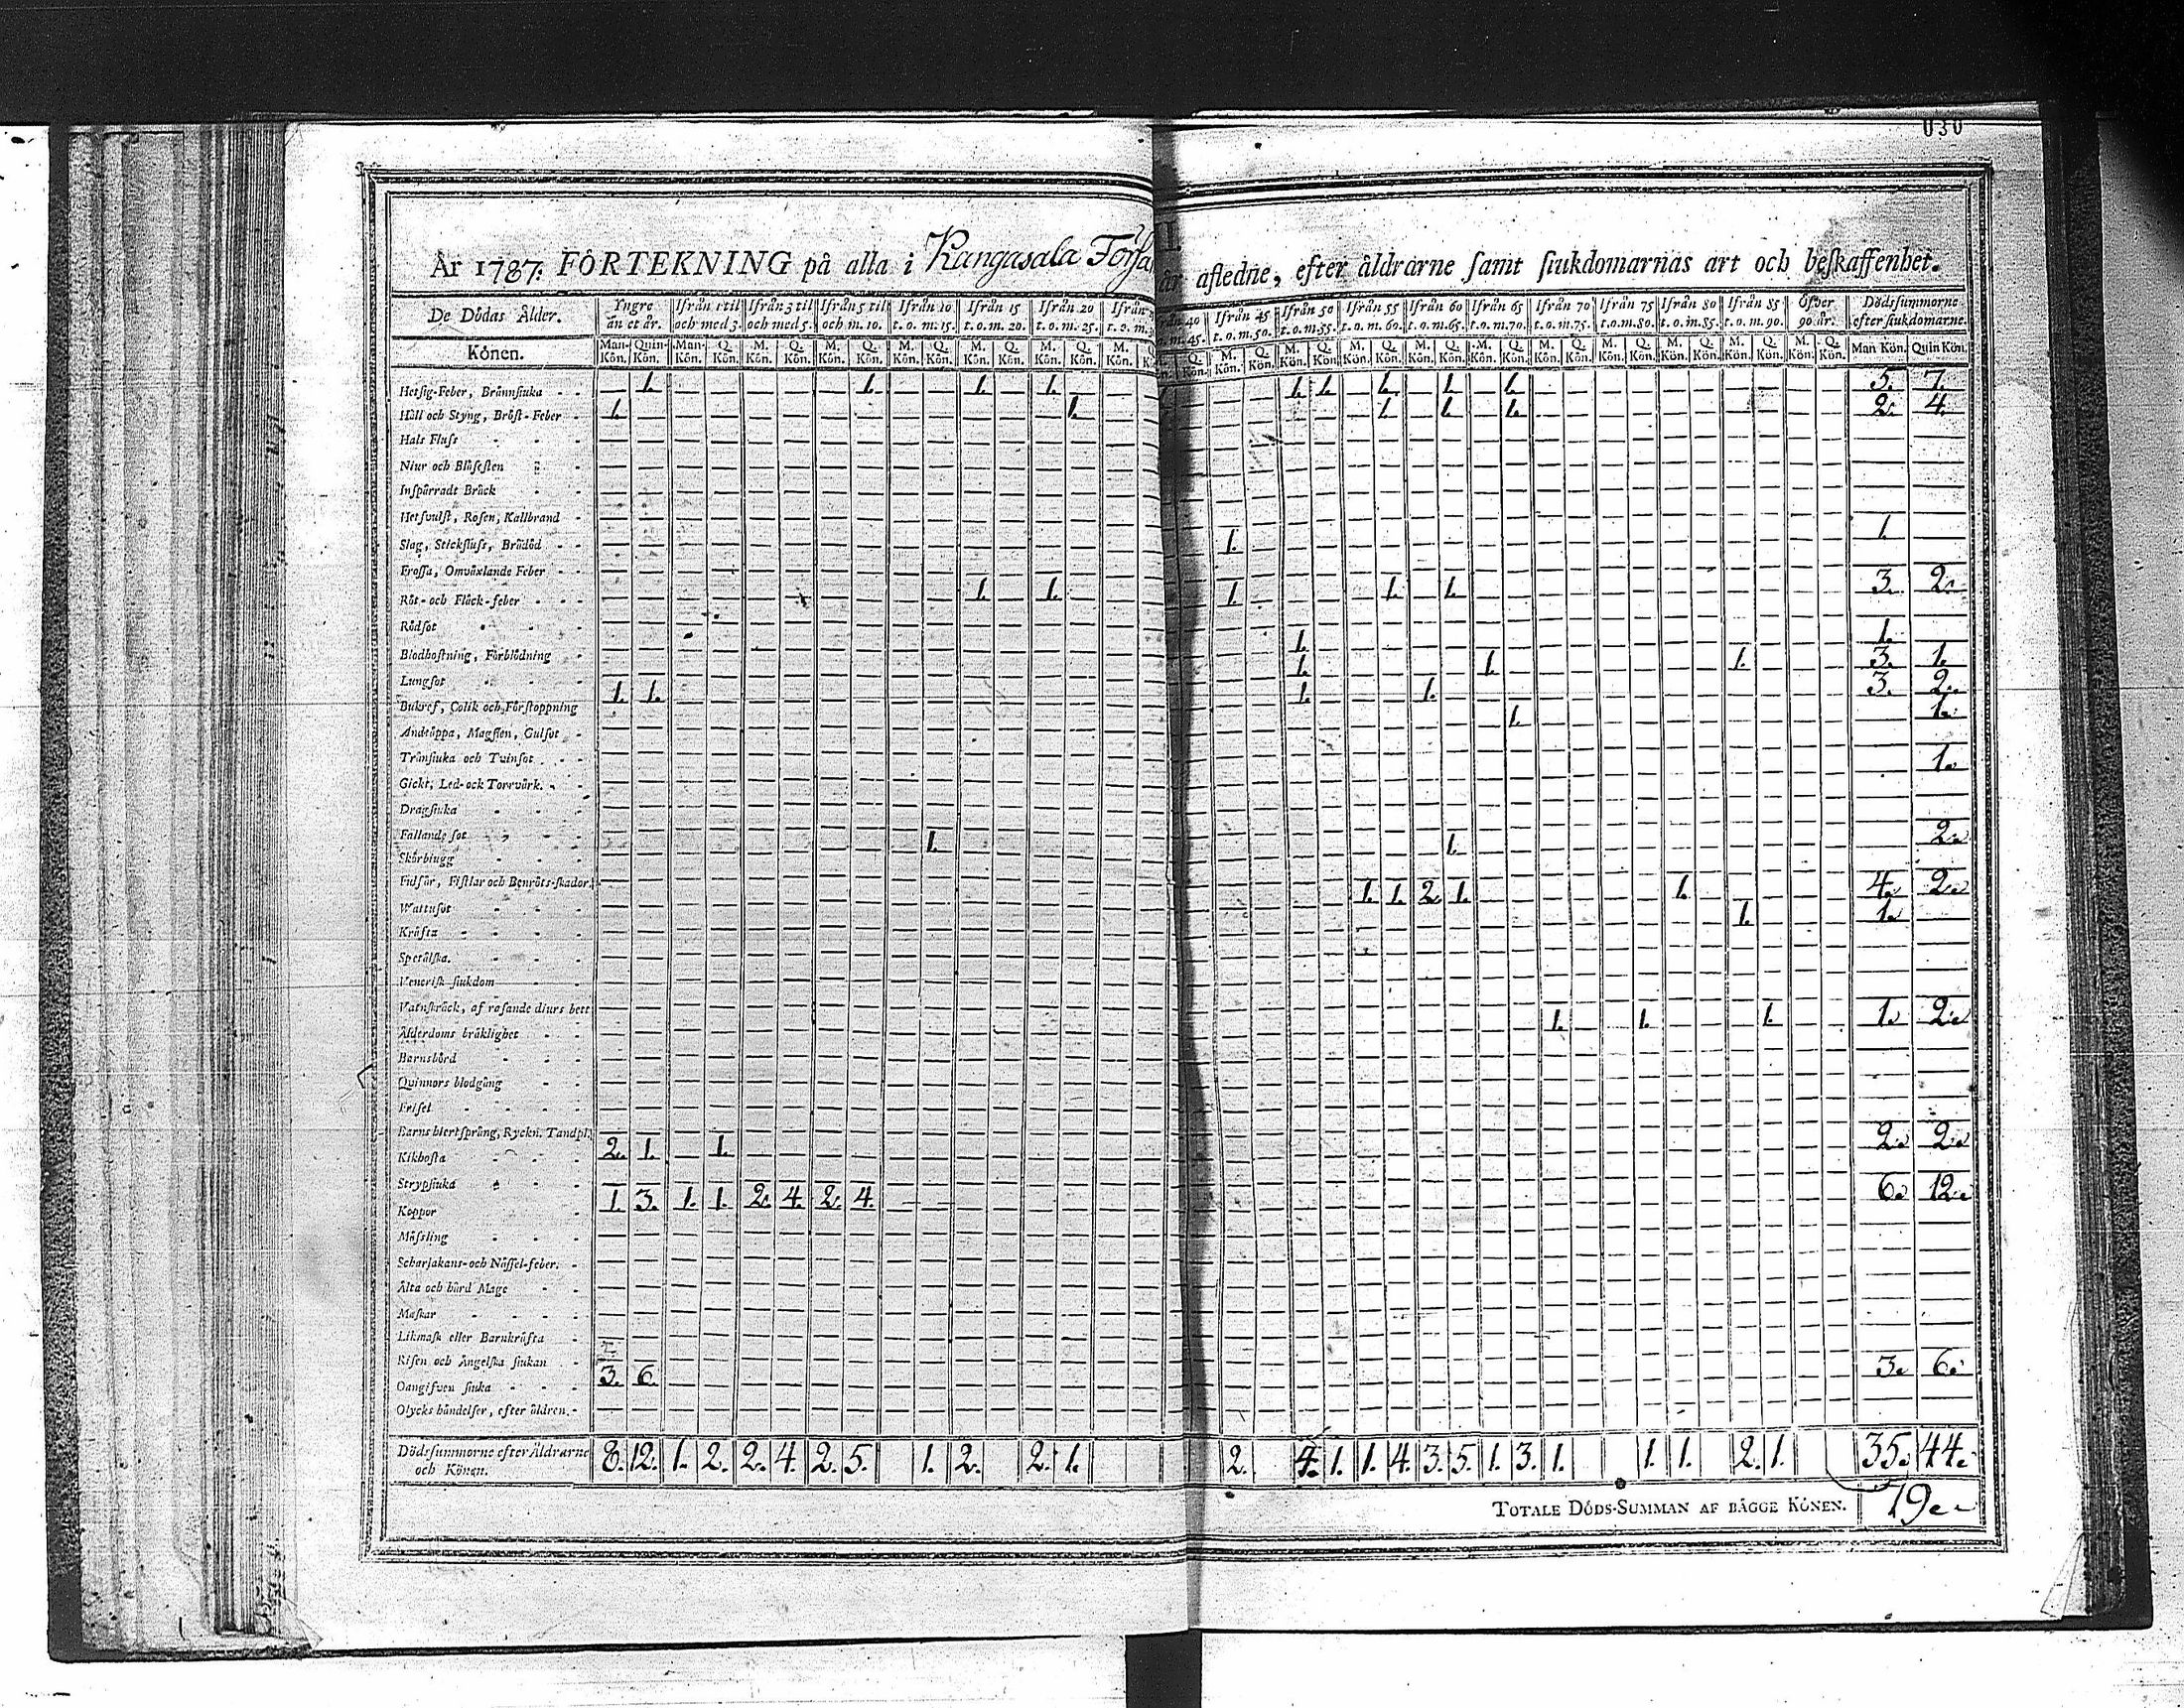 030
År 1787. FÖRTEKNING på alla i Kangasala Försa är afledne, efter åldrarne samt siukdomarnas art och beskaffenhet.
De Dödas Ålder. Yngre än et år. Ifrån 1 til och med 3. Ifrån 3 til och med 5. Ifrån 5 til och m. 10. Ifrån 10 t. o. m. 15. Ifrån 15 t. o. m. 20. Ifrån 20 t. o. m. 25. Ifrån 40 m. 45. Ifrån 45 t. o. m. 50. Ifrån 50 t. o. m. 55. Ifrån 55 t. o. m. 60. Ifrån 60 t. o. m. 65. Ifrån 65 t. o. m. 70. Ifrån 70 t. o. m. 75. Ifrån 75 t. o. m. 80. Ifrån 80 t. o. m. 85. Ifrån 85 t. o. m. 90. Öfver 90 år. Dödssummorne efter siukdomarne.
Könen. Man-Kön. Quin-Kön. Man-Kön. Q. Kön. M. Kön. Q. Kön. M. Kön. Q. Kön. M. Kön. Q. Kön. M. Kön. Q. Kön. M. Kön. Q. Kön. M. Kön. Q. Kön. M. Kön. Q. Kön. M. Kön. Q. Kön. M. Kön. Q. Kön. M. Kön. Q. Kön. M. Kön. Q. Kön. M. Kön. Q. Kön. M. Kön. Q. Kön. M. Kön. Q. Kön. M. Kön. Q. Kön. M. Kön. Q. Kön. Man Kön. Quin Kön.
Hetsig-Feber, Brännsiuka — 1. 1. 1. 1. 1. 1. 1. 1. 1. 5. 7.
Håll och Styng, Bröst-Feber 1. 1. 1. 1. 1. 2. 4.
Hals Fluss
Niur och Blåsesten
Inspärradt Bråck
Hetsvulst, Rosen, Kallbrand
Slag, Stickfluss, Brådöd 1. 1.
Frossa, Omväxlande Feber
Röt- och Fläck-feber 1. 1. 1. 1. 1. 3. 2.
Rödsot
Blodhostning, Förblödning 1. 1.
Lungsot 1. 1. 1. 3. 1.
Bukref, Colik och Förstoppning 1. 1. 1. 1. 3. 2.
Andtäppa, Magsten, Gulsot 1. 1.
Trånsiuka och Tvinsot 1.
Gickt, Led- ock Torrvärk.
Dragsiuka
Fallande sot
Skörbiugg 1. 1. 2.
Fulsår, Fistlar och Benröts-skador
Wattusot 1. 1. 2. 1. 1. 4. 2.
Kräfta 1. 1.
Spetälska.
Venerisk siukdom
Vatnskräck, af rasande diurs bett
Ålderdoms bräklighet 1. 1. 1. 1. 2.
Barnsbörd
Quinnors blodgång
Frisel
Barns hiertsprång, Ryckn. Tandpl.
Kikhosta 2. 1. 1. 2. 2.
Strypsiuka
Koppor 1. 3. 1. 1. 2. 4. 2. 4. 6. 12.
Mässling
Scharlakans- och Nässel-feber.
Älta och hård Mage
Maskar
Likmask eller Barnkräfta
Risen och Ängelska siukan
Oangifven siuka 3. 6. 3. 6.
Olycks händelser, efter åldren.
Dödssummorne efter Åldrarne och Könen. 8. 12. 1. 2. 2. 4. 2. 5. 1. 2. 2. 1. 2. 4. 1. 1. 4. 3. 5. 1. 3. 1. 1. 1. 2. 1. 35. 44.
TOTALE DÖDS-SUMMAN AF BÄGGE KÖNEN. 79.